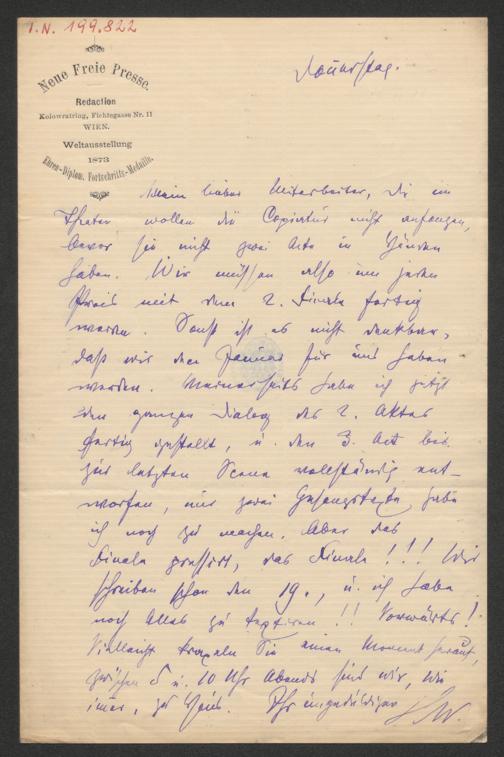 I.N. 199.822
Neue Freie Presse.
Redaction
Kolowratring, Fichtegasse Nr. 11
WIEN.
Weltausstellung
1873
Ehren-Diplom. Fortschritts-Medaille.
Donnerstag.
Mein lieber Mitarbeiter, die im
Theater wollen die Copiatur nicht anfangen,
bevor sie nicht zwei Akte in Händen
haben. Wir müssen also um jeden
Preis mit dem 2. Finale fertig
werden. Sonst ist es nicht denkbar,
daß wir den Januar für uns haben
werden. Meinerseits habe ich jetzt
den ganzen Dialog des 2. Aktes
fertig gestellt, u. den 3. Act bis
zur letzten Scene vollständig ent-
worfen, nur zwei Gesangstexte habe
ich noch zu machen. Aber das
Finale pressirt, das Finale!!! Wir
schreiben schon den 19., u. ich habe
noch Alles zu textiren!! Vorwärts!
Vielleicht traxeln Sie einen Moment herauf,
zwischen 5 u. 10 Uhr Abends sind wir, wie
immer, zu Haus. Ihr ungeduldiger